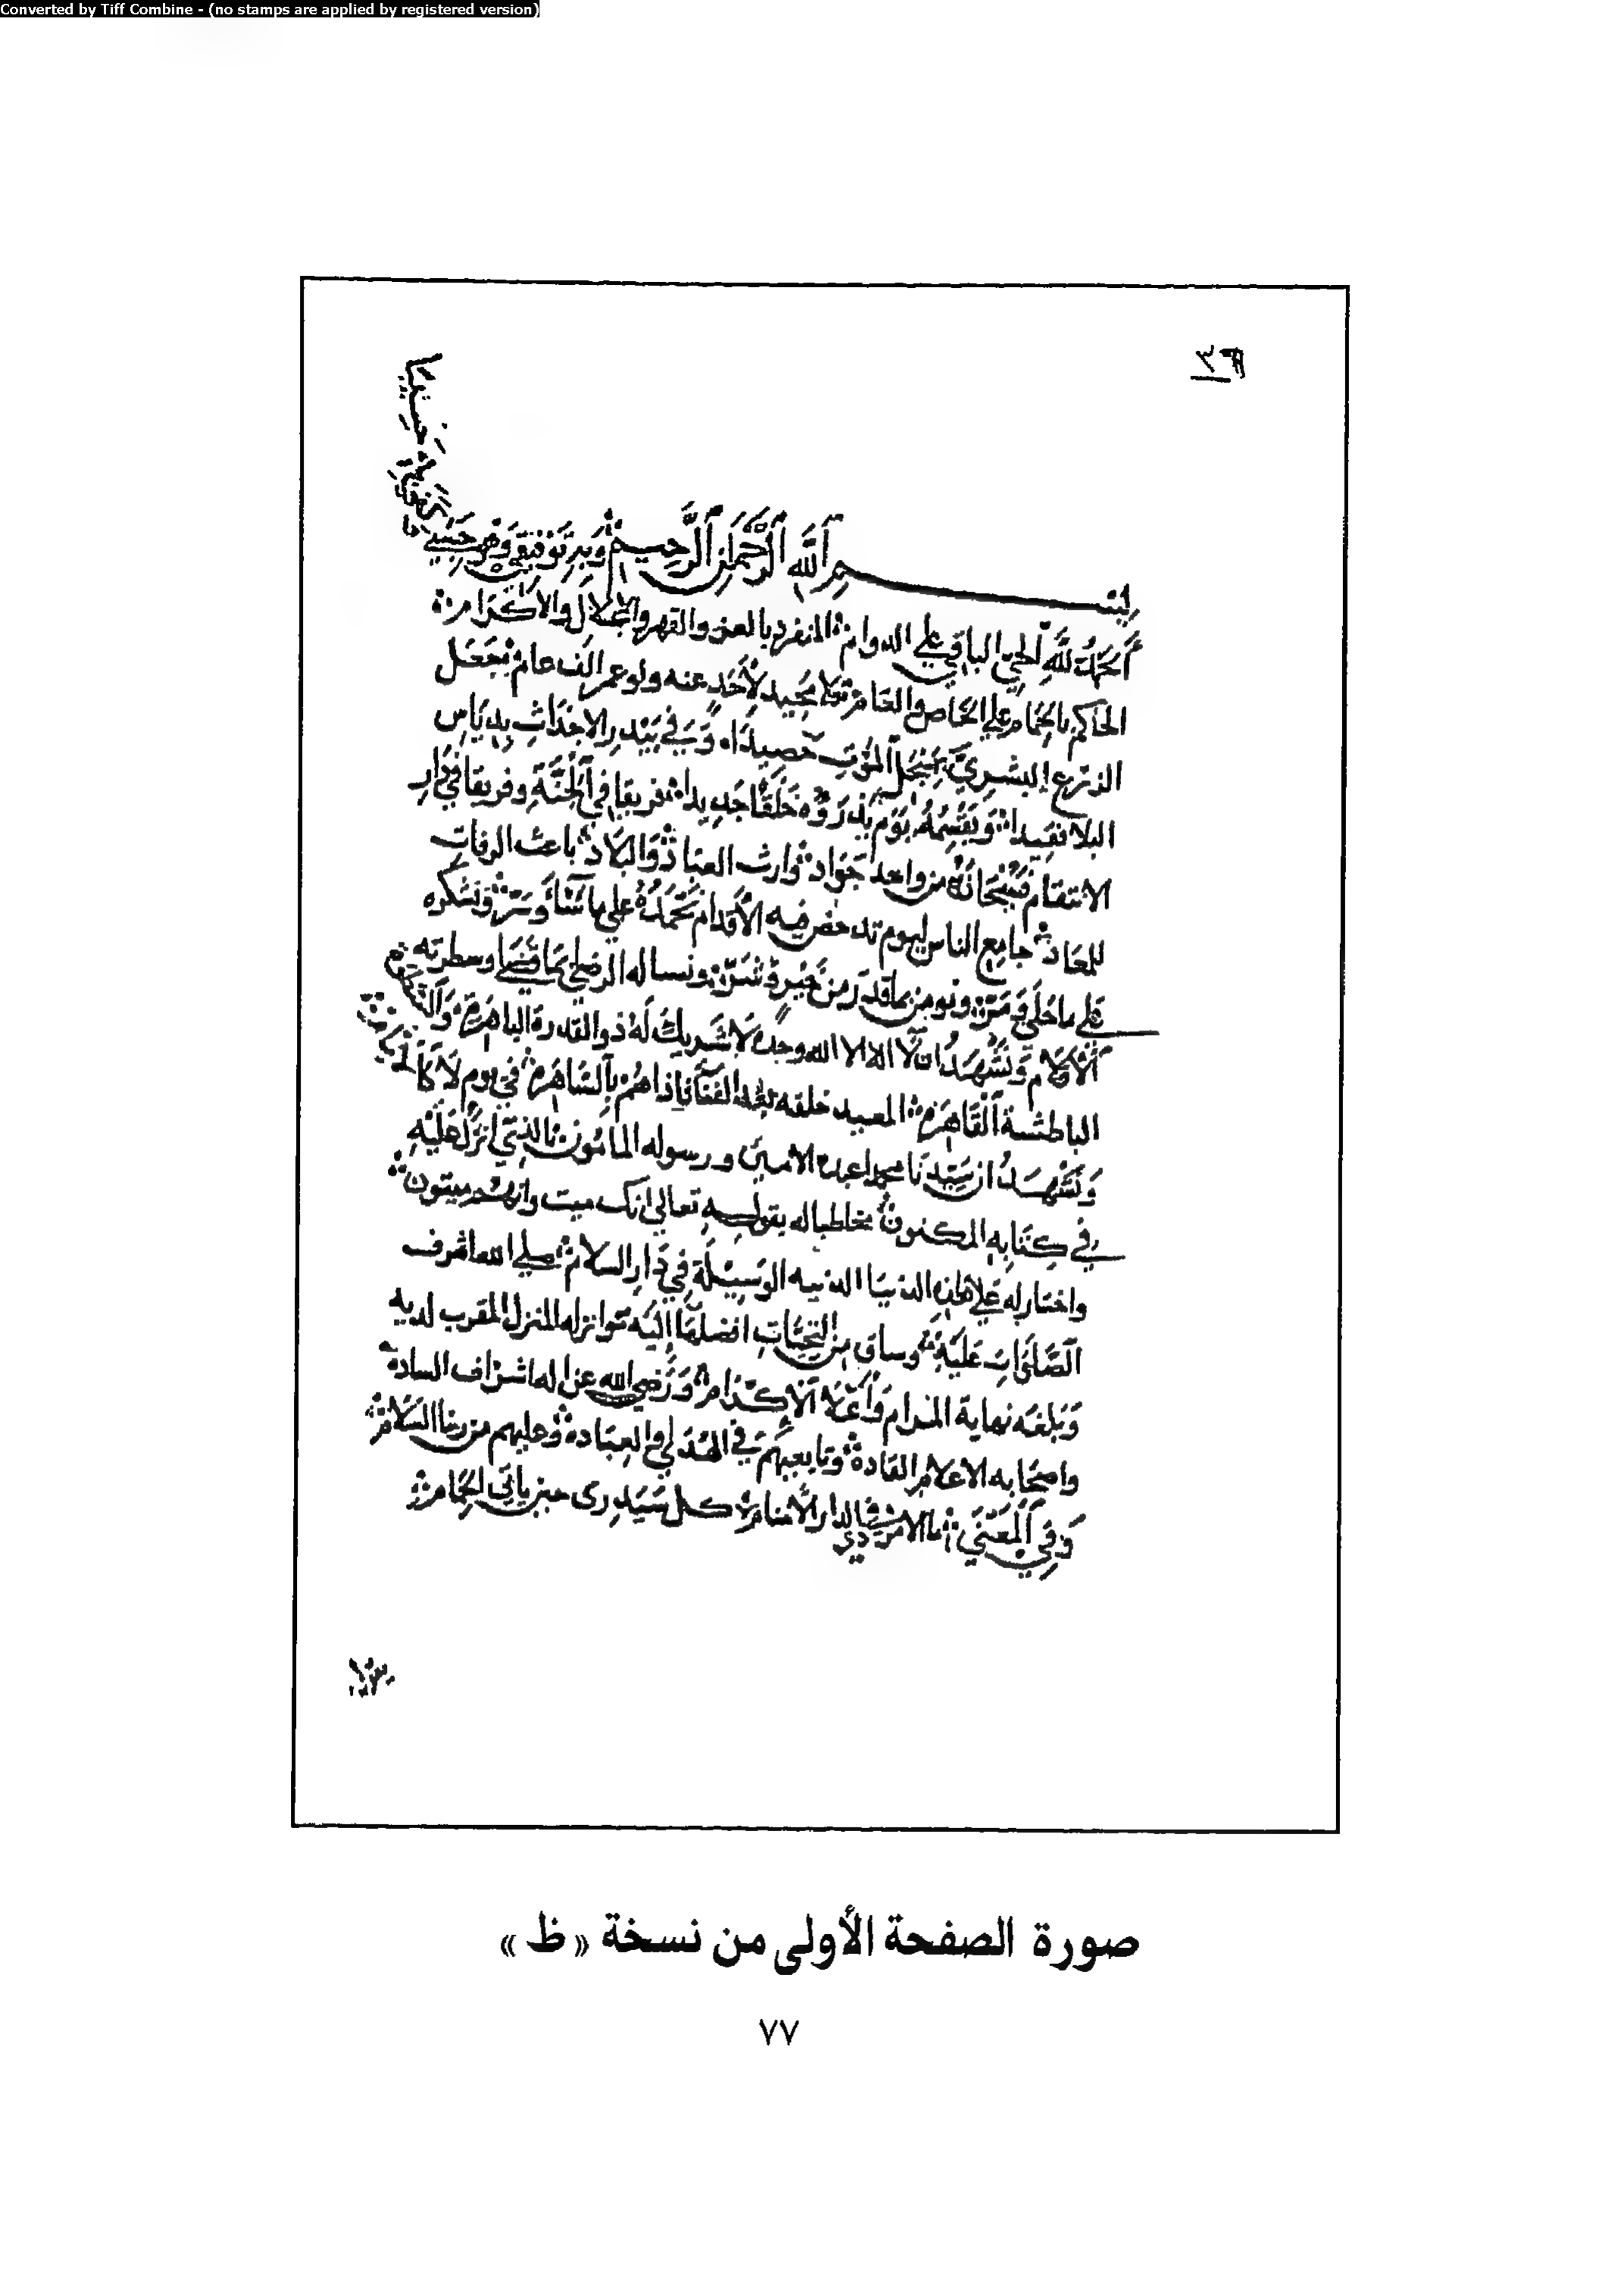 Converted by Tiff Combine - (no stamps are applied by registered version)
بسم الله الرحمن الرحيم وبه توفيقي وهو حسبي
الحمد لله الحي الباقي على الدوام المنفرد بالعز والقهر والجلال والاكرام
الحاكم بالحمام على الخاص والعام فلا محيد لأحد عنه ولو عمر الف عام جعل
الزرع البشري بمنجل الموت حصيدا وفي بيدر الاجداث يدياس
البلا فقيدا ويقسمه يوم يذروه خلقا جديدا فريقا في الجنة وفريقا في دار
الانتقام فسبحانه من واحد جواد وارث العباد والبلاد باعث الرفات
للمعاد جامع الناس ليوم تدحض فيه الأقدام نحمده على ما شاء وسر ونشكره
على ما حلى ومر ونومن بما قدر من خير وشر ونساله الرضى بما قضى وسطرته
الأقلام ونشهد ان لا اله الا الله وحده لا شريك له ذو القدرة الباهرة
الباطشة القاهرة المعيد خلقه بعد الفنا فاذا هم بالساهرة في يوم لا
ونشهد ان سيدنا محمدا عبده الامين ورسوله المامون الذي انزل عليه
في كتابه المكنون مخاطبا له بقوله تعالى انك ميت وانهم ميتون
واختار له على هذه الدنيا الدنيه الوسيلة في دار السلام صلى الله اشرف
الصلوات عليه وساق من التحيات افضلها اليه وانزله المنزل المقرب لديه
وبلغه نهاية المرام وأعلا الإكرام ورضي الله عن اله اشراف السادة
واصحابه الاعلام القادة وتابعيهم في الهدى والعبادة وعليهم من ربنا السلام
وفي المعنى الدار الأنام كل سيدرى حين ياتي الحمام
صورة الصفحة الأولى من نسخة « ظ »
٧٧